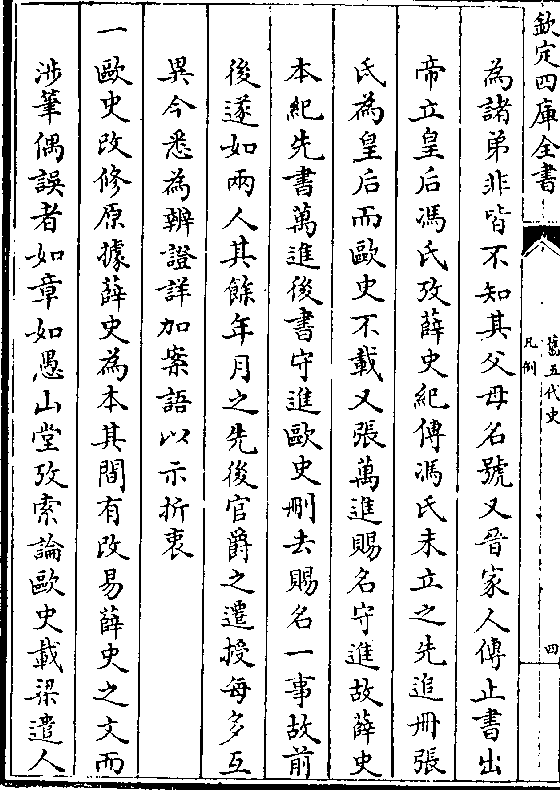 欽定四庫全書
舊五代史
凡例
四
為諸弟非皆不知其父母名號又晉家人傳止書出
帝立皇后馮氏攷薛史紀傳馮氏未立之先追冊張
氏為皇后而歐史不載又張萬進賜名守進故薛史
本紀先書萬進後書守進歐史刪去賜名一事故前
後遂如兩人其餘年月之先後官爵之遷授每多互
異今悉為辨證詳加案語以示折衷
一歐史改修原據薛史為本其間有改易薛史之文而
涉筆偶誤者如章如愚山堂攷索論歐史載梁遣人